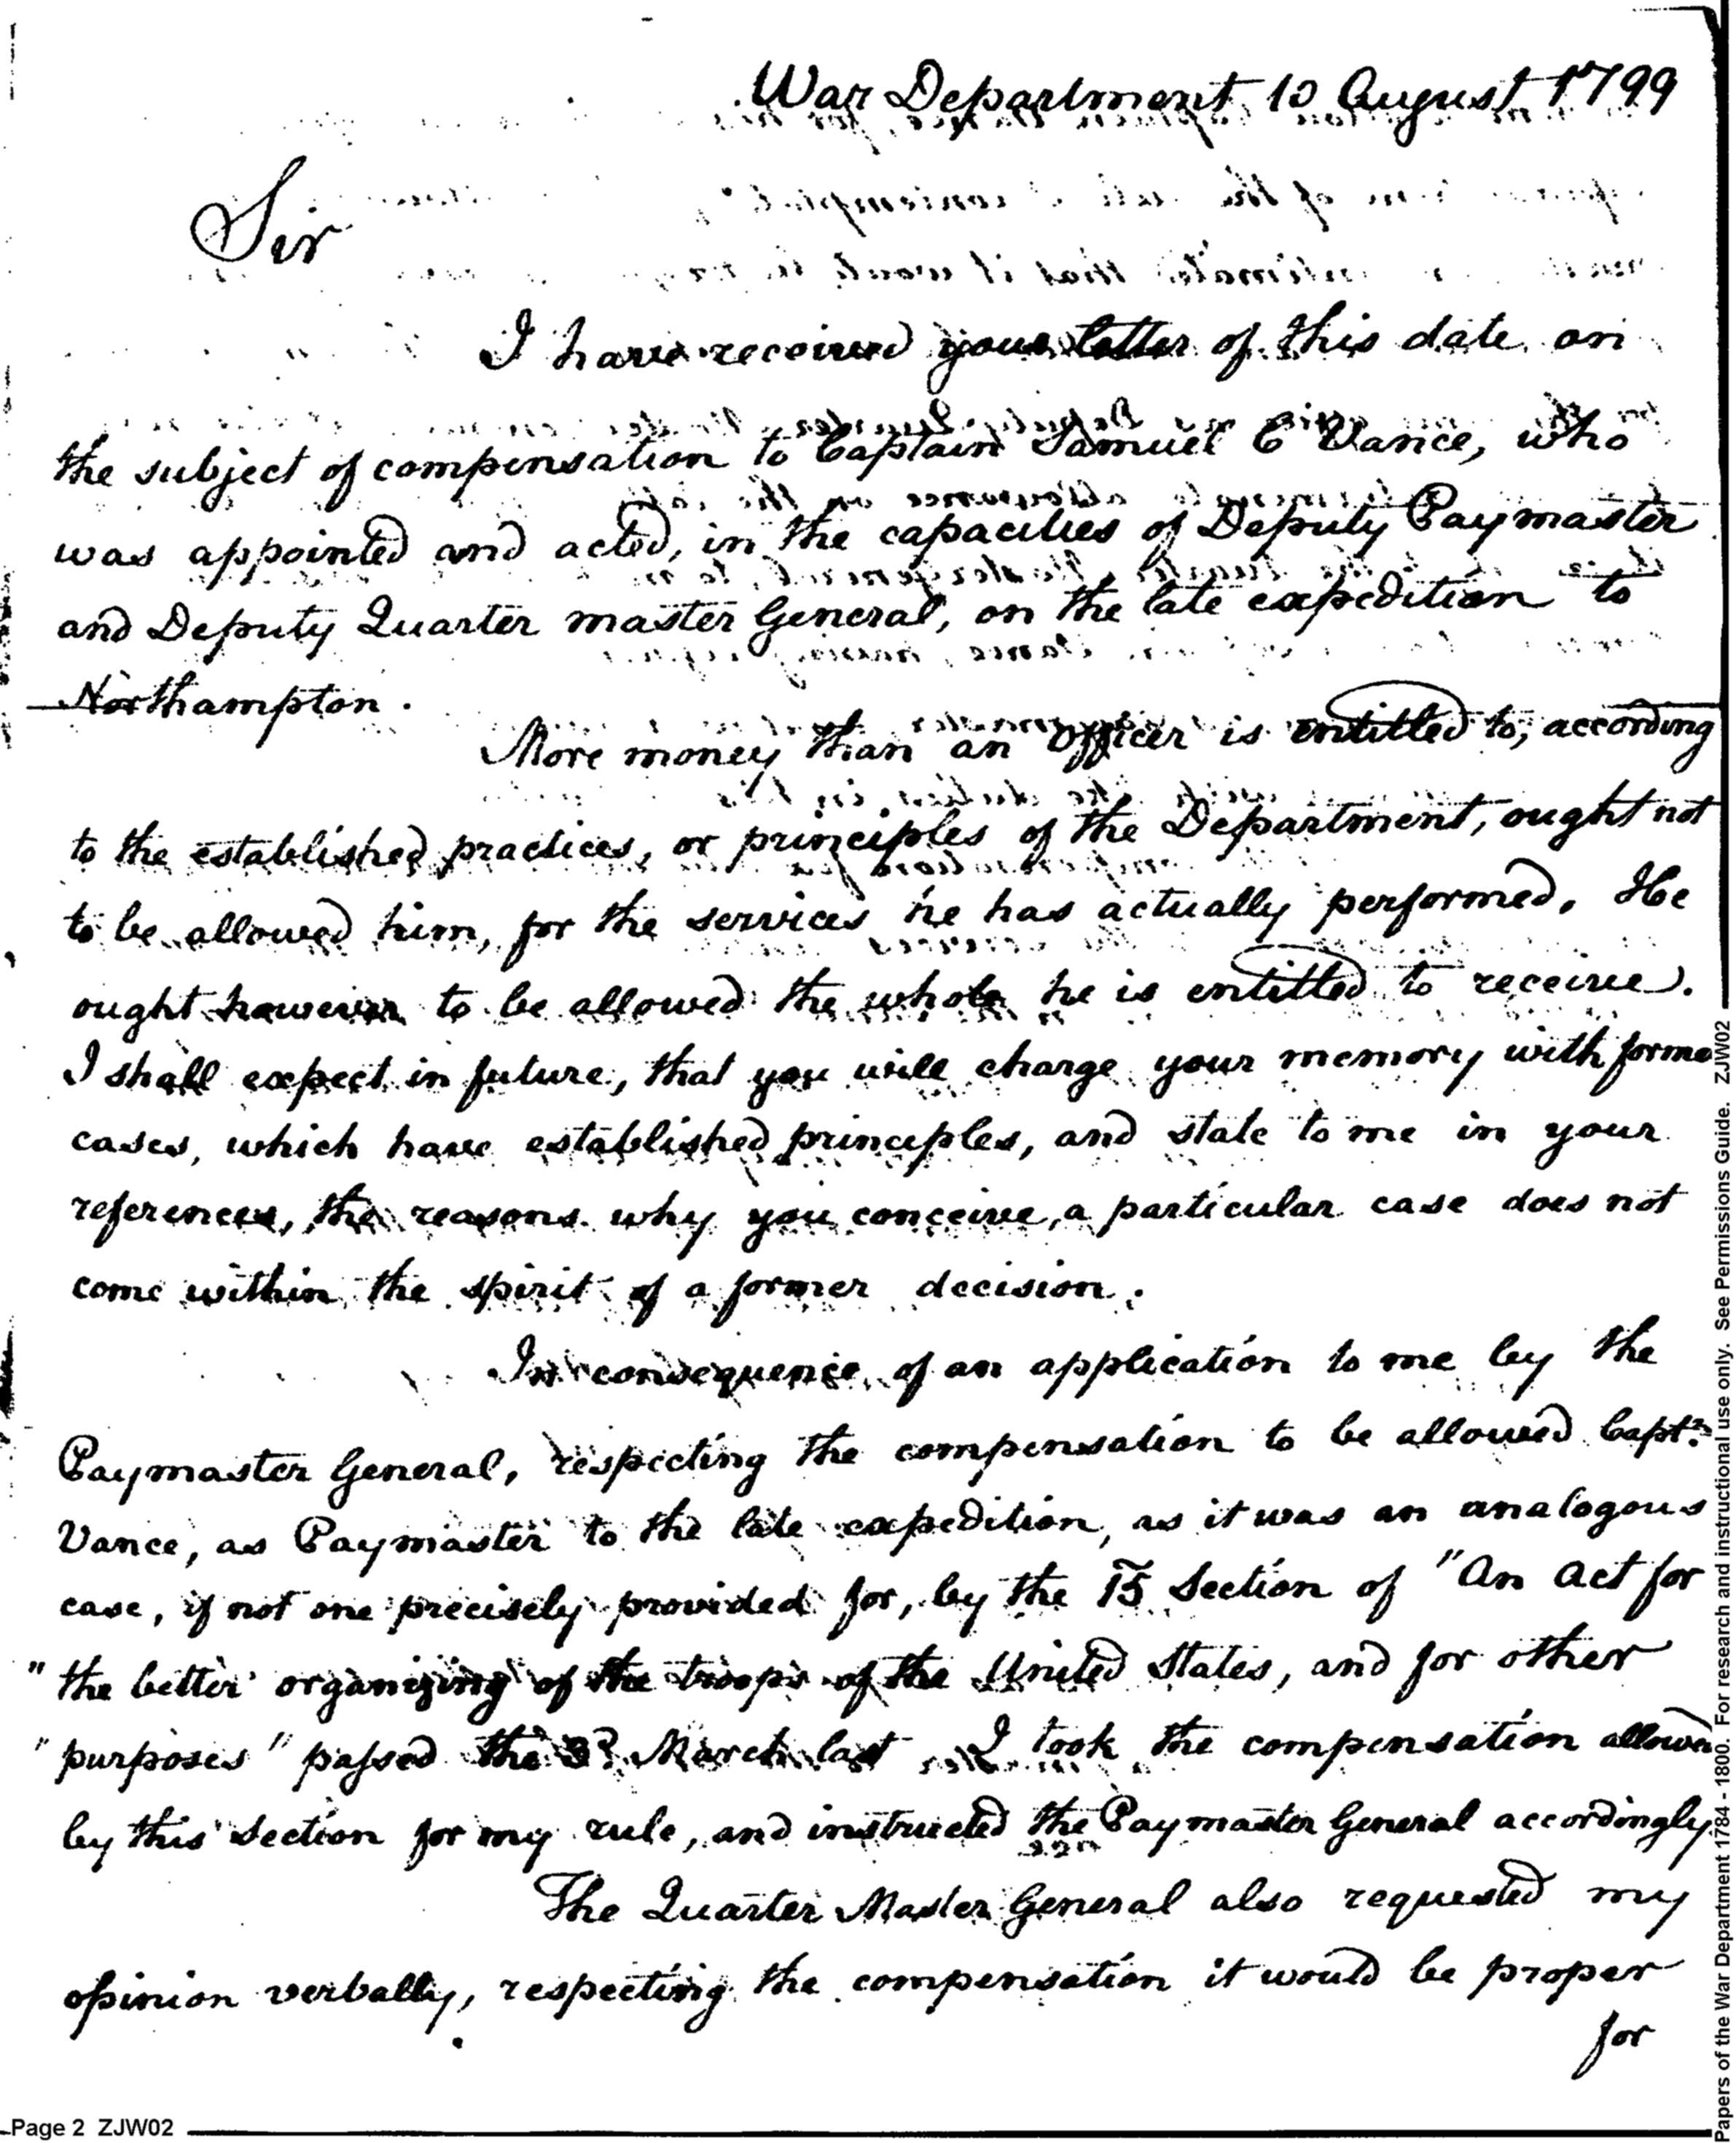 War Department 10 August 1799
Sir
I have received your letter of this date on
the subject of compensation to Captain Samuel C Vance, who
was appointed and acted, in the capacities of Deputy Paymaster
and Deputy Quarter master General, on the late expedition to
Northampton.
More money than an officer is entitled to, according
to the established practices, or principles of the Department, ought not
to be allowed him, for the services he has actually performed. He
ought however to be allowed the whole he is entitled to receive.
I shall expect in future, that you will charge your memory with forme
cases, which have established principles, and state to me in your
references, the reasons why you conceive, a particular case does not
come within the spirit of a former decision.
In consequence of an application to me by the
Paymaster General, respecting the compensation to be allowed Capt.
Vance, as Paymaster to the late expedition, as it was an analogous
case, if not one precisely provided for, by the 15 Section of "An Act for
"the better organizing of the troops of the United States, and for other
"purposes" passed the 3d March last I took the compensation allowed
by this Section for my rule, and instructed the Paymaster General accordingly
The Quarter Master General also requested my
opinion verbally, respecting the compensation it would be proper
for
Page 2 ZJW02
Papers of the War Department 1784 - 1800. For research and instructional use only. See Permissions Guide. ZJW02